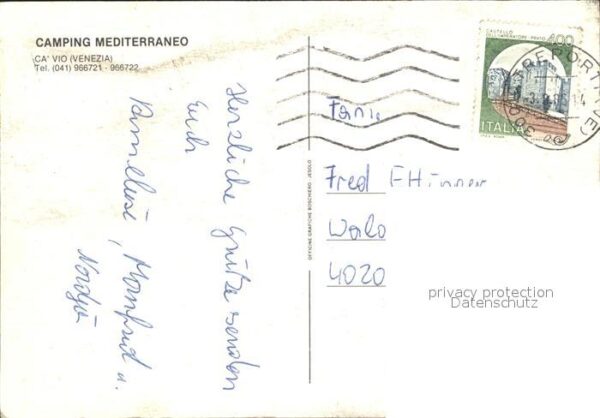 CAMPING MEDITERRANEO
CA' VIO (VENEZIA)
Tel. (041) 966721 - 966722
Herzliche Grüße senden
Euch
Anneliese, Manfred u.
Nadja
OFFICINE GRAFICHE BOSCHIERO - JESOLO
CASTELLO
DELL'IMPERATORE - PRATO 400
ITALIA
Fam.
Fred
4020
privacy protection
Datenschutz